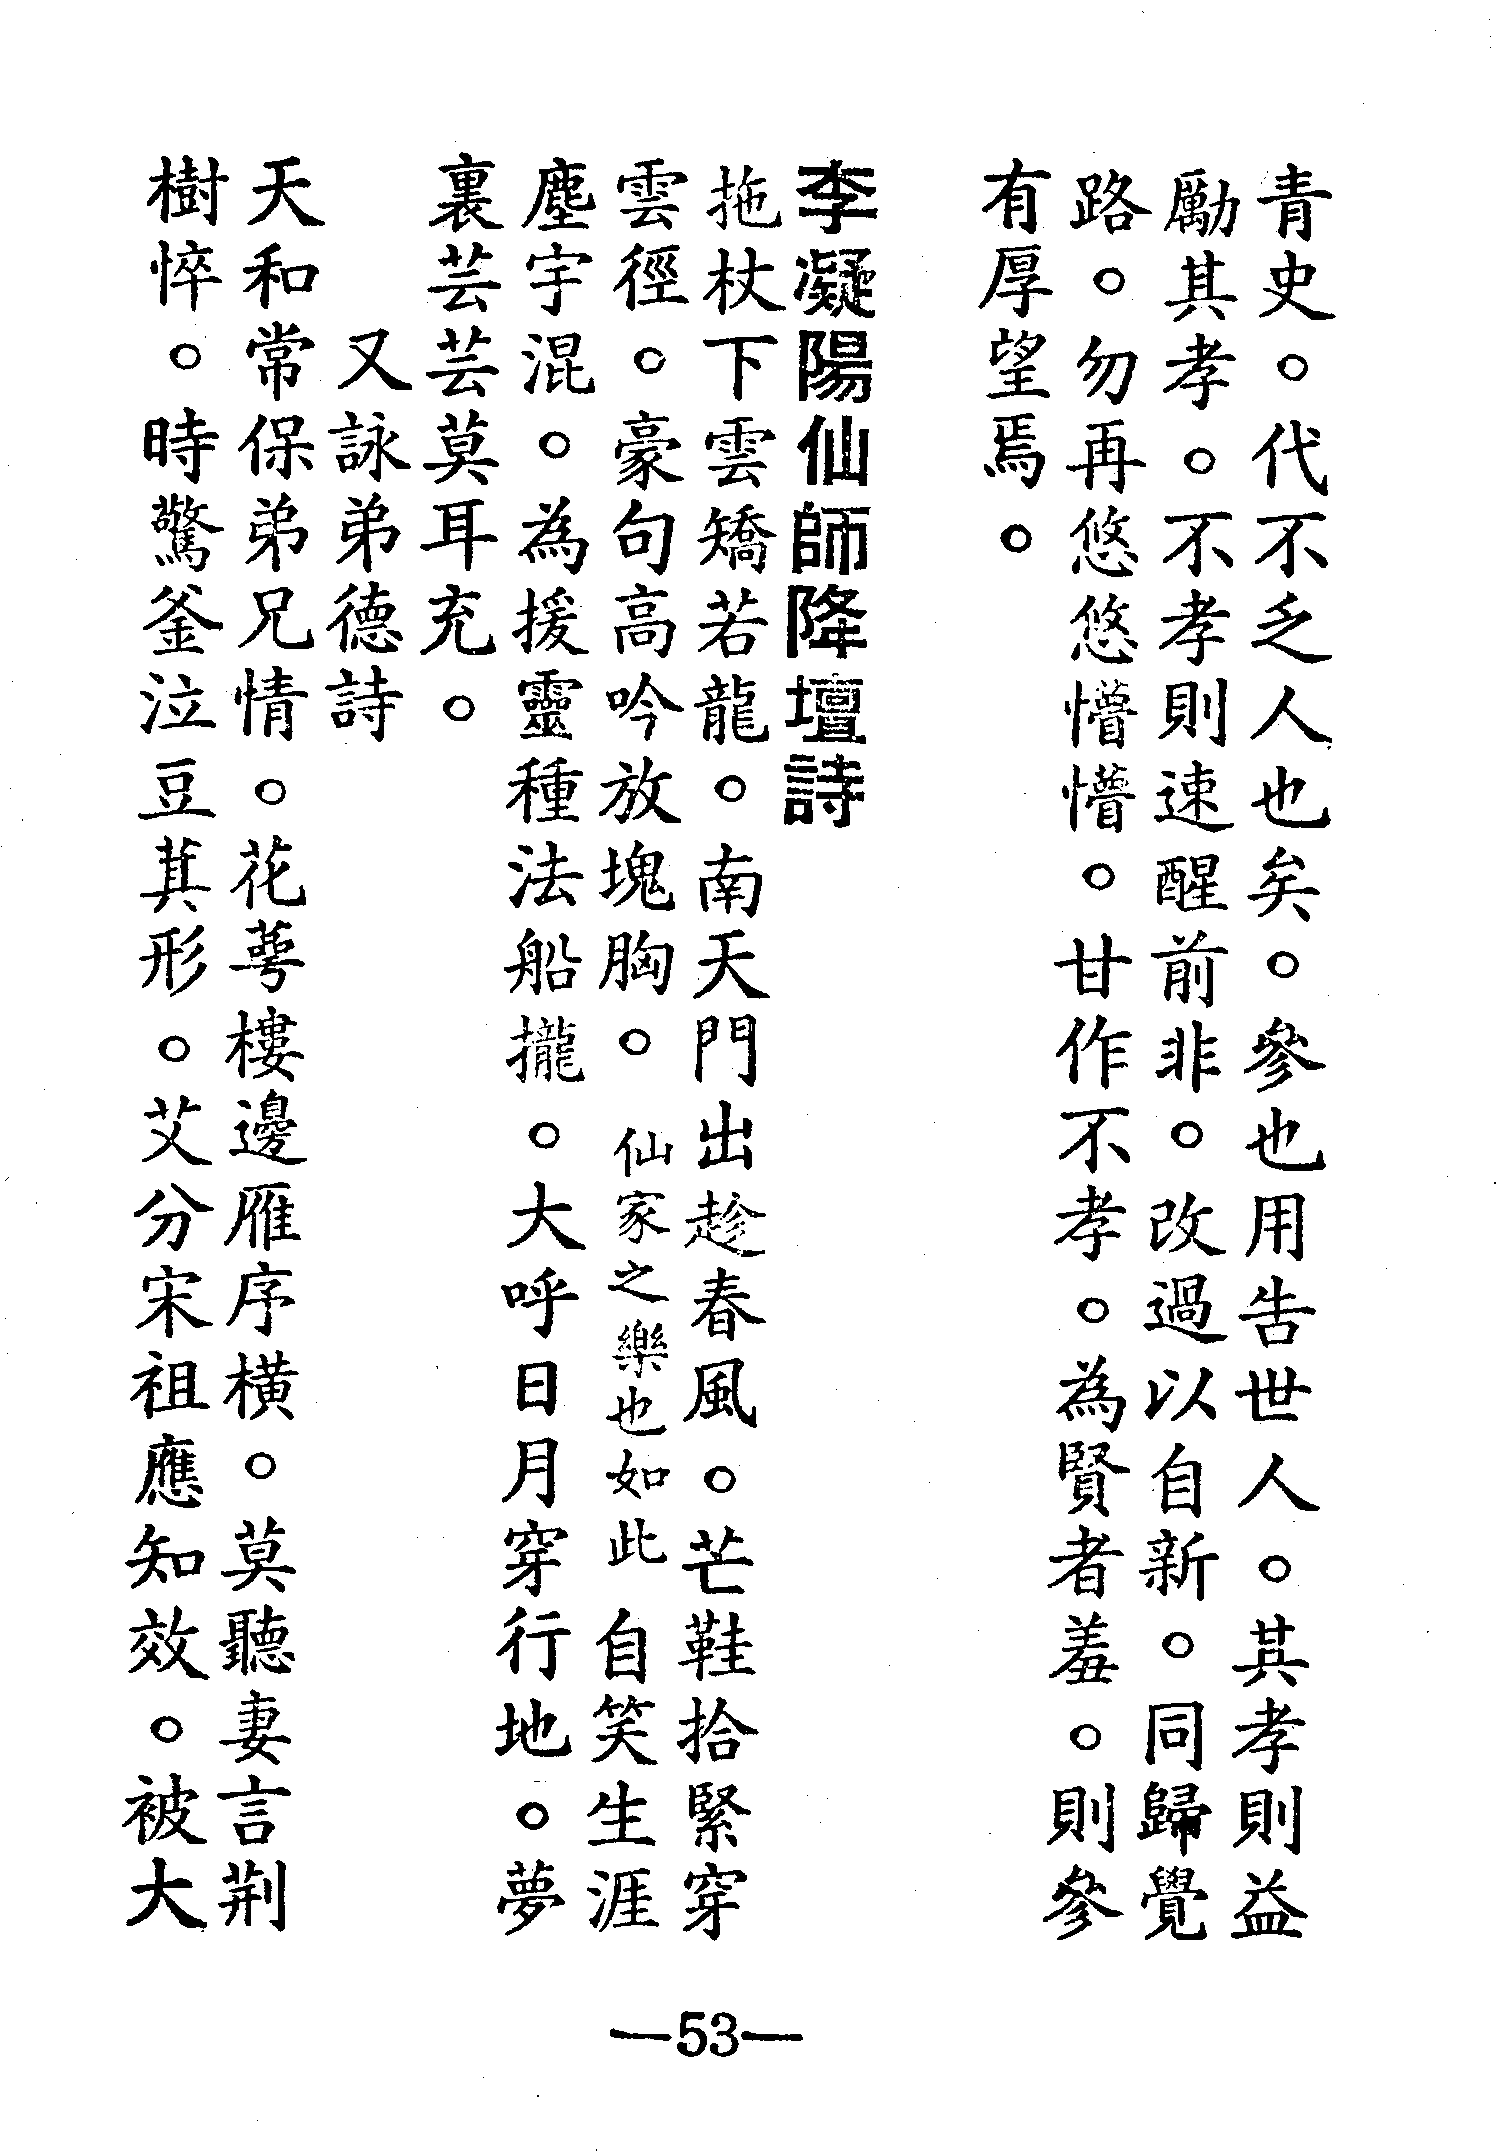 青史。代不乏人也矣。參也用告世人。其孝則益
勵其孝。不孝則速醒前非。改過以自新。同歸覺
路。勿再悠悠懵懵。甘作不孝。為賢者羞。則參
有厚望焉。
李凝陽仙師降壇詩
拖杖下雲矯若龍。南天門出趁春風。芒鞋拾緊穿
雲徑。豪句高吟放塊胸。仙家之樂也如此自笑生涯
塵宇混。為援靈種法船攏。大呼日月穿行地。夢
裏芸芸莫耳充。
又詠弟德詩
天和常保弟兄情。花萼樓邊雁序橫。莫聽妻言荆
樹悴。時驚釜泣豆萁形。艾分宋祖應知效。被大
—53—